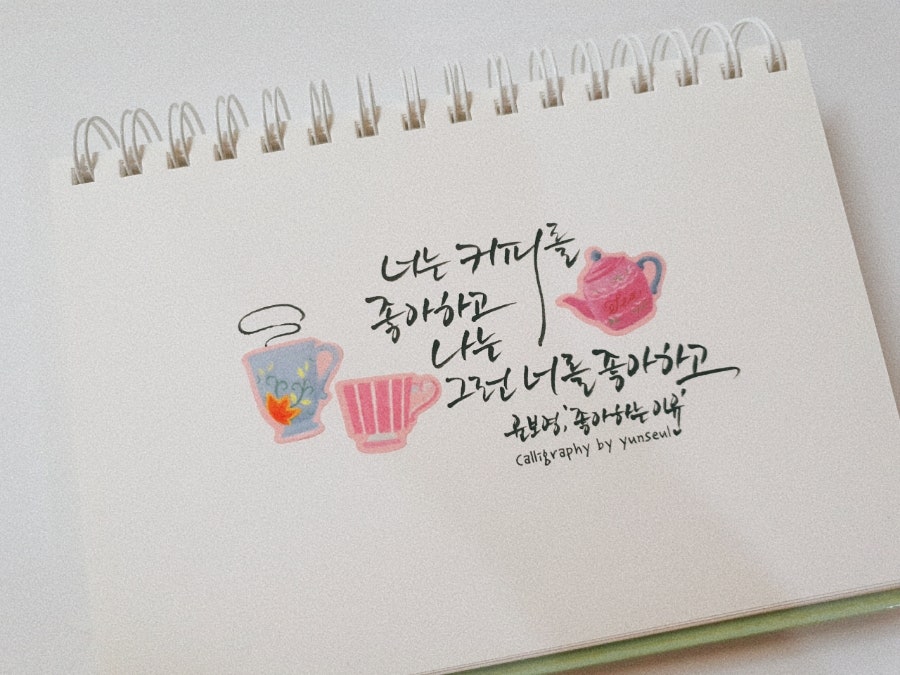 너는 커피를
좋아하고
나는
그런 너를 좋아하고
윤보영, '좋아하는 이유'
calligraphy by yunseul
tea